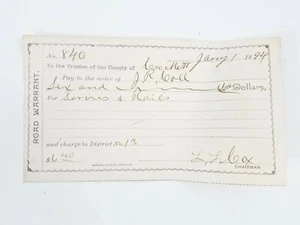 No. 840
To the Trustee of the County of Crockett Jany 1 1894
Pay to the order of J. R.
Six and Dollars,
For Services & Nails
and charge to District No. 13
$6 40
L. L. Cox
CHAIRMAN.
ROAD WARRANT.